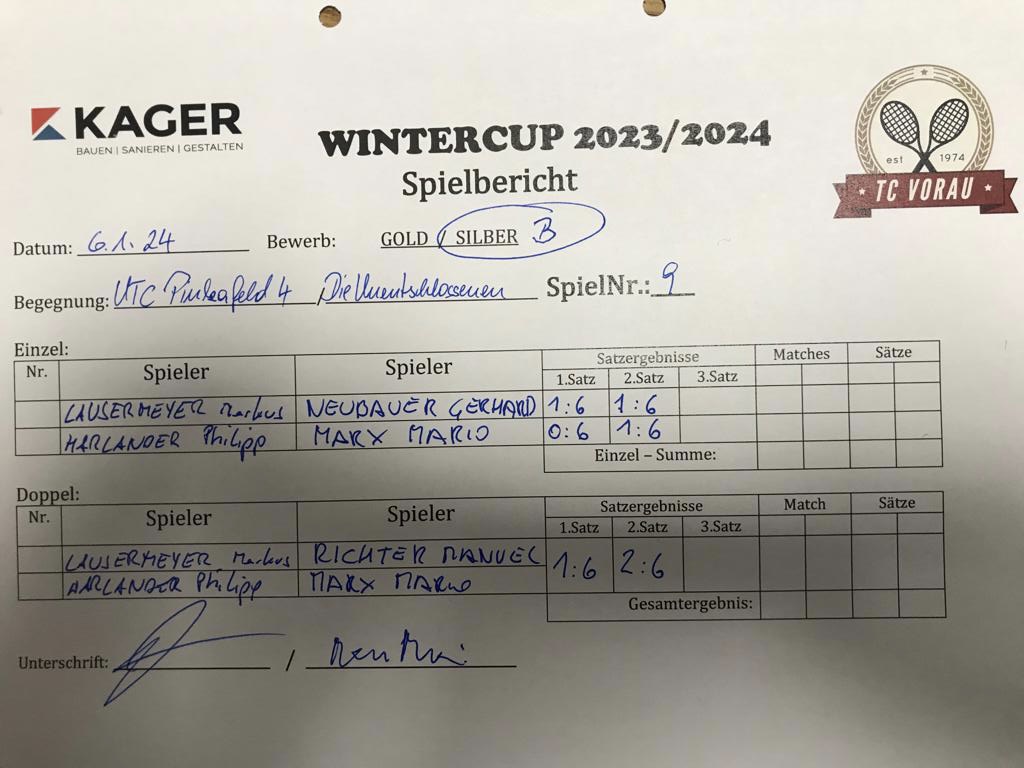 KAGER
BAUEN | SANIEREN | GESTALTEN
WINTERCUP 2023/2024
Spielbericht
est 1974
TC VORAU
Datum: 6.1.24 Bewerb: GOLD / SILBER B
Begegnung: UTC Pinkafeld 4 / Die Unentschlossenen SpielNr.: 9
Einzel:
Nr. Spieler Spieler Satzergebnisse Matches Sätze
1.Satz 2.Satz 3.Satz
LAUSERMEYER Markus NEUBAUER GERHARD 1:6 1:6
HARLANDER Philipp MARX MARIO 0:6 1:6
Einzel – Summe:
Doppel:
Nr. Spieler Spieler Satzergebnisse Match Sätze
1.Satz 2.Satz 3.Satz
LAUSERMEYER Markus RICHTER MANUEL 1:6 2:6
HARLANDER Philipp MARX MARIO
Gesamtergebnis:
Unterschrift: /